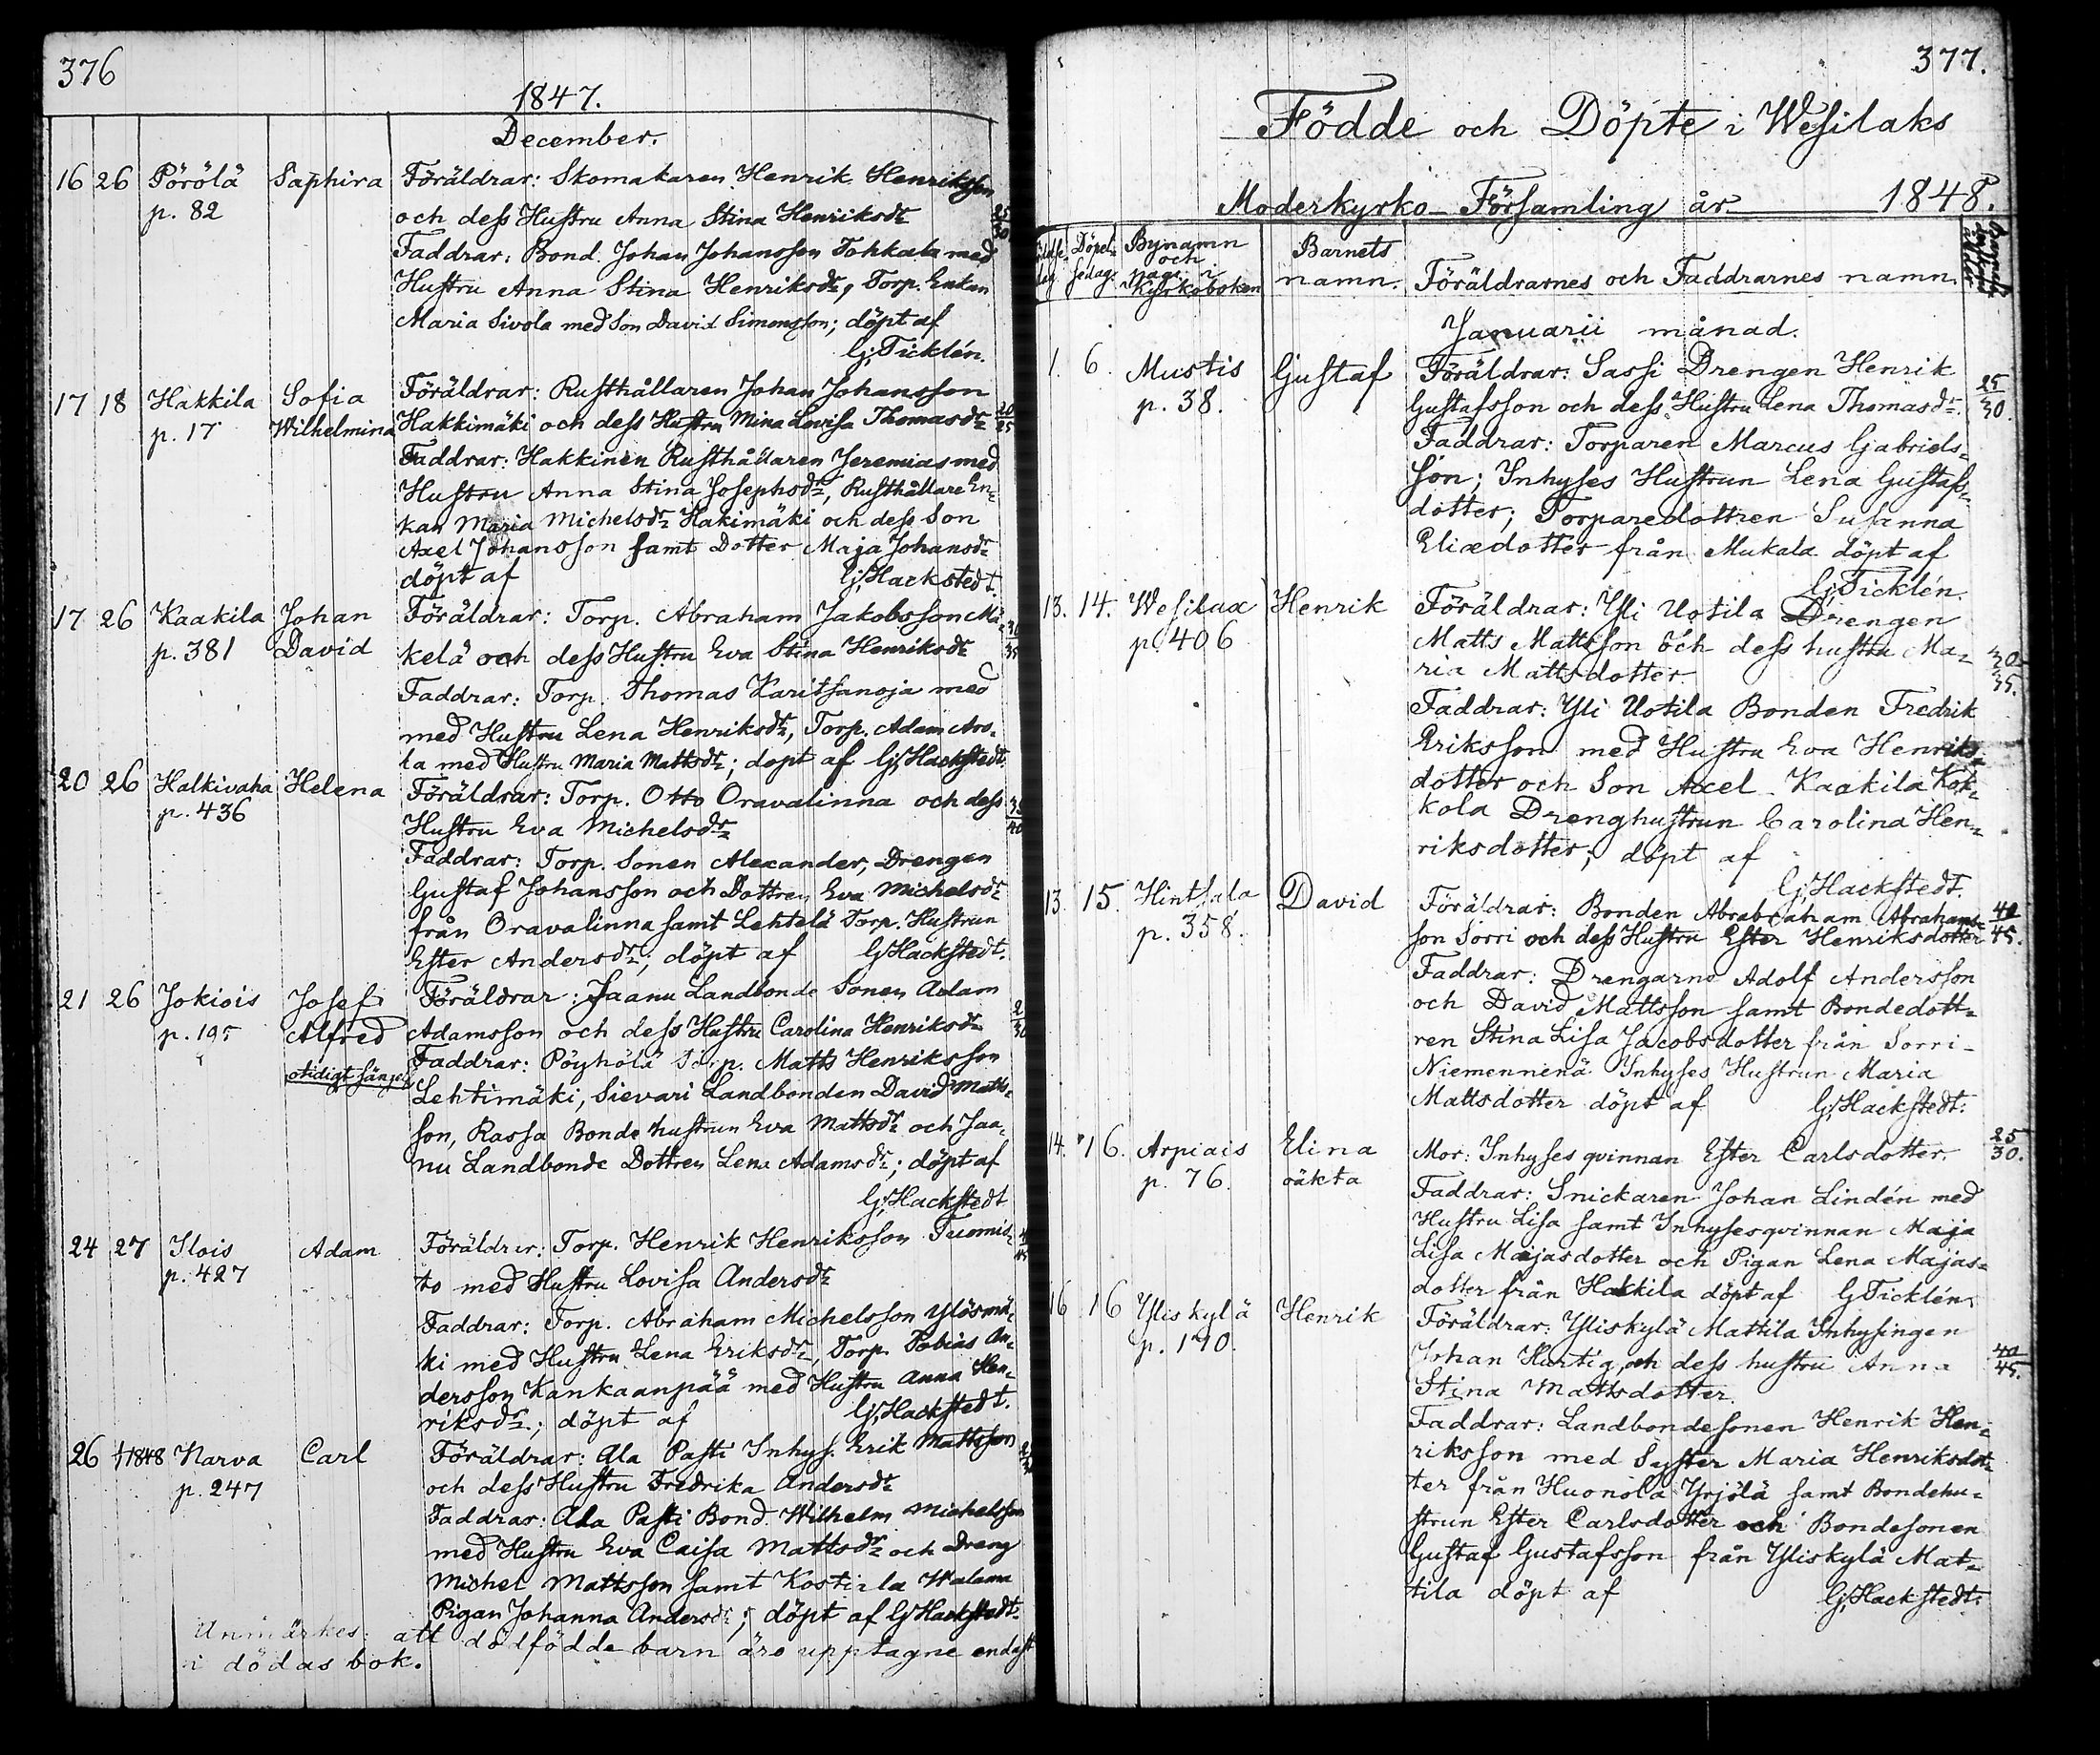 376
1847.
December.
16 26 Pörölä Saphira Föräldrar: Skomakaren Henrik Henriksson
p. 82 och dess Hustru Anna Stina Henriksdr
Faddrar: Bond. Johan Johansson Tohkala med
Hustru Anna Stina Henriksdr, Torp. Enkan
Maria Sivola med Son David Simonsson; döpt af
Gj Ticklén.
17 18 Hakkila Sofia Föräldrar: Rusthållaren Johan Johansson
p. 17 Wilhelmina Hakkimäki och dess Hustru Mina Lovisa Thomasdr 20/25
Faddrar: Hakkinen Rusthållaren Jeremias med
Hustru Anna Stina Josephsdr, Rusthållare En=
kan Maria Michelsdr Hakimäki och dess Son
Axel Johansson samt Dotter Maja Johansdr
döpt af Gj Hackstedt.
17 26 Kaakila Johan Föräldrar: Torp. Abraham Jakobsson Mä=
p. 381 David kelä och dess Hustru Eva Stina Henriksdr
Faddrar: Torp. Thomas Karitsanoja med
med Hustru Lena Henriksdr, Torp. Adam Aro=
la med Hustru Maria Mattsdr; döpt af Gj Hackstedt
20 26 Halkivaha Helena Föräldrar: Torp. Otto Oravalinna och dess
p. 436 Hustru Eva Michelsdr
Faddrar: Torp. Sonen Alexander, Drengen
Gustaf Johansson och Dottren Eva Michelsdr
från Oravalinna samt Lehtelä Torp. Hustrun
Ester Andersdr; döpt af Gj Hackstedt.
21 26 Jokiois Josef Föräldrar: Jaanu Landbonde Sonen Adam
p. 195 Alfred Adamsson och dess Hustru Carolina Henriksdr
Faddrar: Pöyhölä Torp. Matts Henriksson
otidigt sängel.
Lehtimäki, Sievari Landbonden David Matts=
son, Rassa Bonde hustrun Eva Mattsdr och Jaa=
nu Landbonde Dottren Lena Adamsdr; döpt af
Gj Hackstedt
24 27 Ilois Adam Föräldrar: Torp. Henrik Henriksson Tuomis=
p. 427 to med Hustru Lovisa Andersdr
Faddrar: Torp. Abraham Michelsson Ylösmä=
ki med Hustru Lena Eriksdr, Torp. Tobias An=
dersson Kankaanpää med Hustru Anna Hen=
riksdr.; döpt af Gj Hackstedt.
26 1/1 1848 Narva Carl Föräldrar: Ala Pasti Inhys. Erik Mattsson
p. 247 och dess Hustru Fredrika Andersdr
Faddrar: Ala Pasti Bond. Wilhelm Michelsson
med Hustru Eva Caisa Mattsdr och Dreng
Michel Mattsson samt Kostiala Walama
Pigan Johanna Andersdr; döpt af Gj Hackstedt
Anmärkes: att dödfödde barn äro upptagne endast
i dödas bok.
377.
Födde och Döpte i Wesilaks
Moderkyrko Församling år 1848.
Födelse dag. Döpel= sedag. Bynamn och pagi. i Kyrkoboken Barnets namn. Föräldrarnes och Faddrarnes namn.
Januarii månad.
1. 6. Mustis Gustaf Föräldrar: Sassi Drengen Henrik
p. 38. Gustafsson och dess Hustru Lena Thomasdr 25/30.
Faddrar: Torparen Marcus Gabriels=
son; Inhyses Hustrun Lena Gustafs=
dotter; Torparedottren Susanna
Eliædotter från Mukala döpt af
Gj Ticklén.
13. 14. Wesilax Henrik Föräldrar: Yli Uotila Drengen
p. 406 Matts Mattsson och dess hustru Ma= 30/35.
ria Mattsdotter
Faddrar: Yli Uotila Bonden Fredrik
Eriksson med Hustru Eva Henriks=
dotter och Son Axel. Kaakila Kok=
kola Drenghustrun Carolina Hen=
riksdotter; döpt af
Gj Hackstedt.
13. 15. Hintsala David Föräldrar: Bonden Abrabraham Abrahams= 40/45.
p. 358. son Sorri och dess Hustru Ester Henriksdotter
Faddrar: Drengarne Adolf Andersson
och David Mattsson samt Bondedott=
ren Stina Lisa Jacobsdotter från Sorri-
Niemennenä Inhyses Hustrun Maria
Mattsdotter döpt af Gj Hackstedt.
14. 16. Arpiais Elina Mor: Inhyses qvinnan Ester Carlsdotter. 25/30.
p. 76. oäkta Faddrar: Snickaren Johan Lindén med
Hustru Lisa samt Inhysesqvinnan Maja
Lisa Majasdotter och Pigan Lena Majas=
dotter från Hakkila döpt af Gj Ticklén.
16 16 Yliskylä Henrik Föräldrar: Yliskylä Mattila Inhysingen
p. 140. Johan Hurtig och dess hustru Anna 40/45.
Stina Mattsdotter.
Faddrar: Landbondesonen Henrik Hen=
riksson med Syster Maria Henriksdot=
ter från Huonola Yrjölä samt Bondehu=
strun Ester Carlsdotter och Bondesonen
Gustaf Gustafsson från Yliskylä Mat=
tila döpt af Gj Hackstedt.